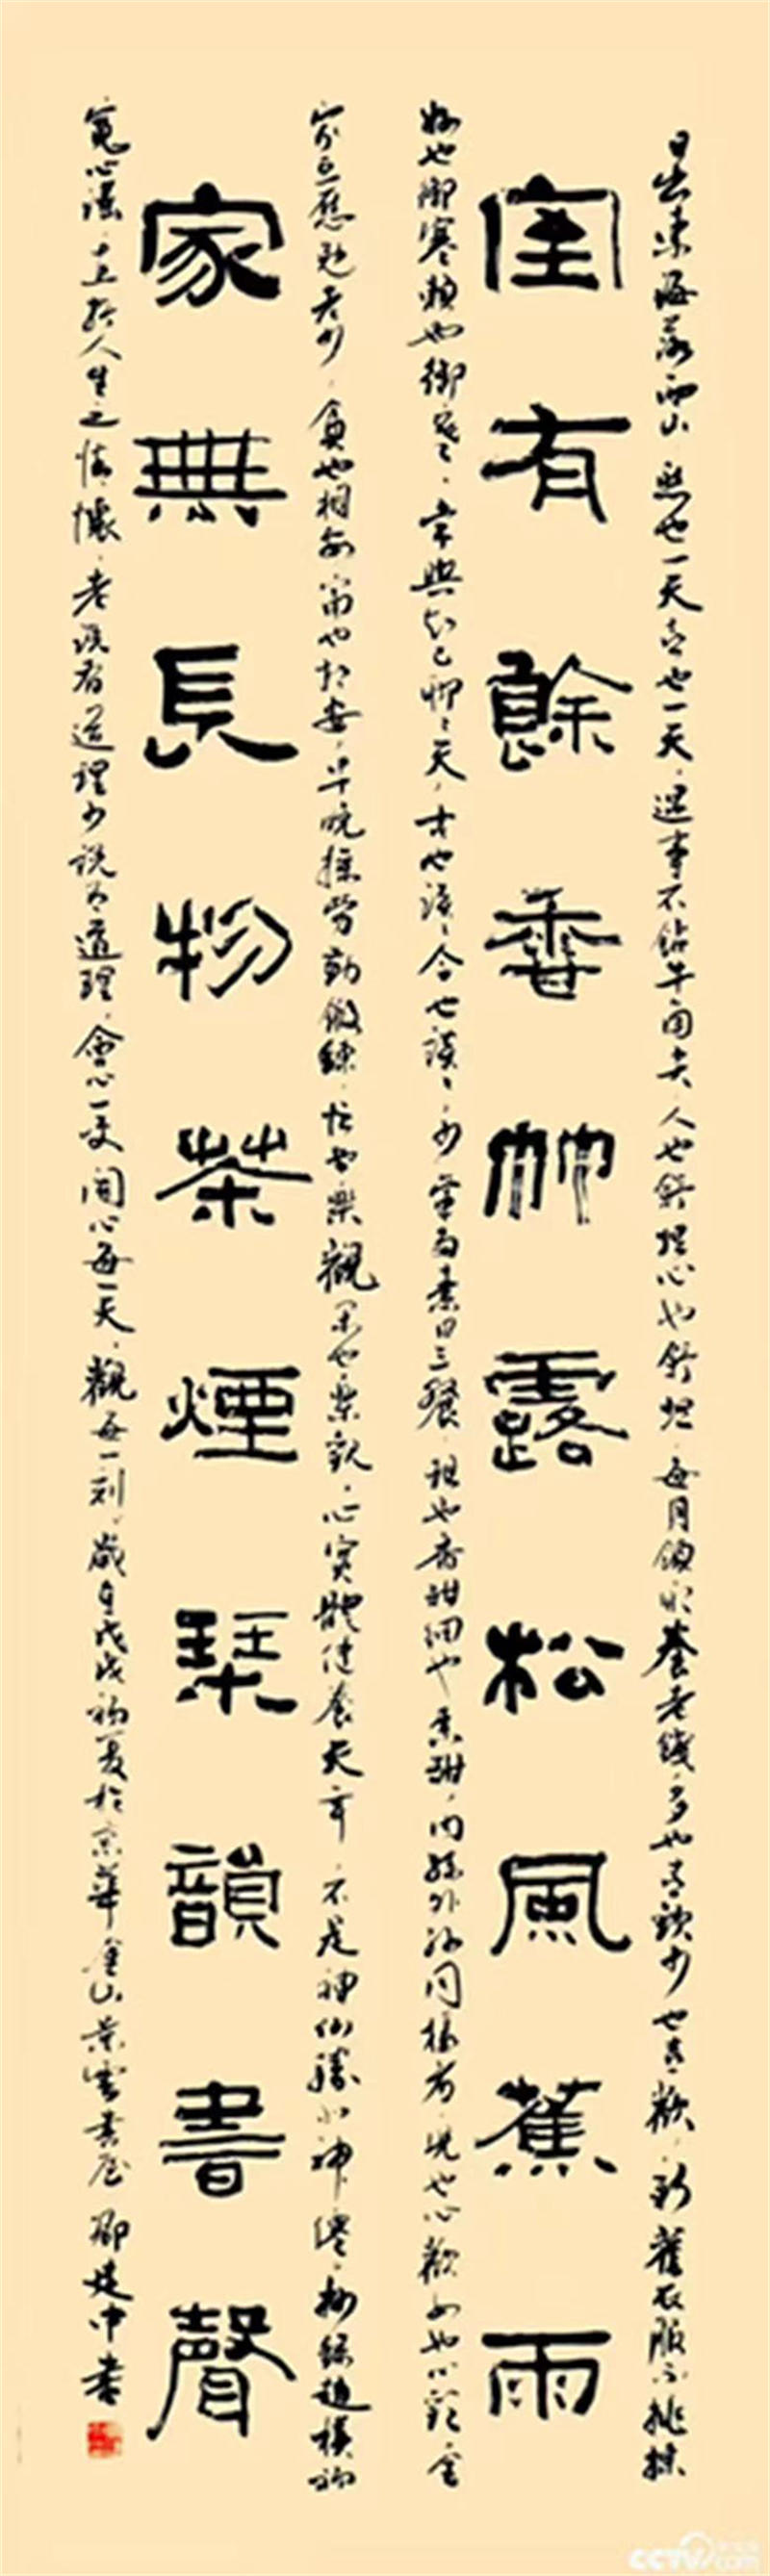 日出東海落西山愁也一天喜也一天遇事不鑽牛角尖人也舒坦心也舒坦每月領取養老錢多也喜歡少也喜歡新舊衣服不挑揀
室有餘香竹露松風蕉雨
好也御寒賴也御寒常與知己聊聊天古也談談今也談談少葷多素日三餐粗也香甜細也香甜內孫外孫同樣看兒也心歡女也心歡全
家互慰勉老少貧也相安富也相安早晚操勞勤鍛鍊忙也樂觀閑也樂觀心寬體健養天年不是神仙勝似神仙抄錄趙樸初
家無長物茶煙琴韻書聲
寬心謠人生之情懷老有道理少說有道理會心一笑開心每一天觀每一刻歲在戊戌初夏於京華金山書屋邵建中書
CCTV.com